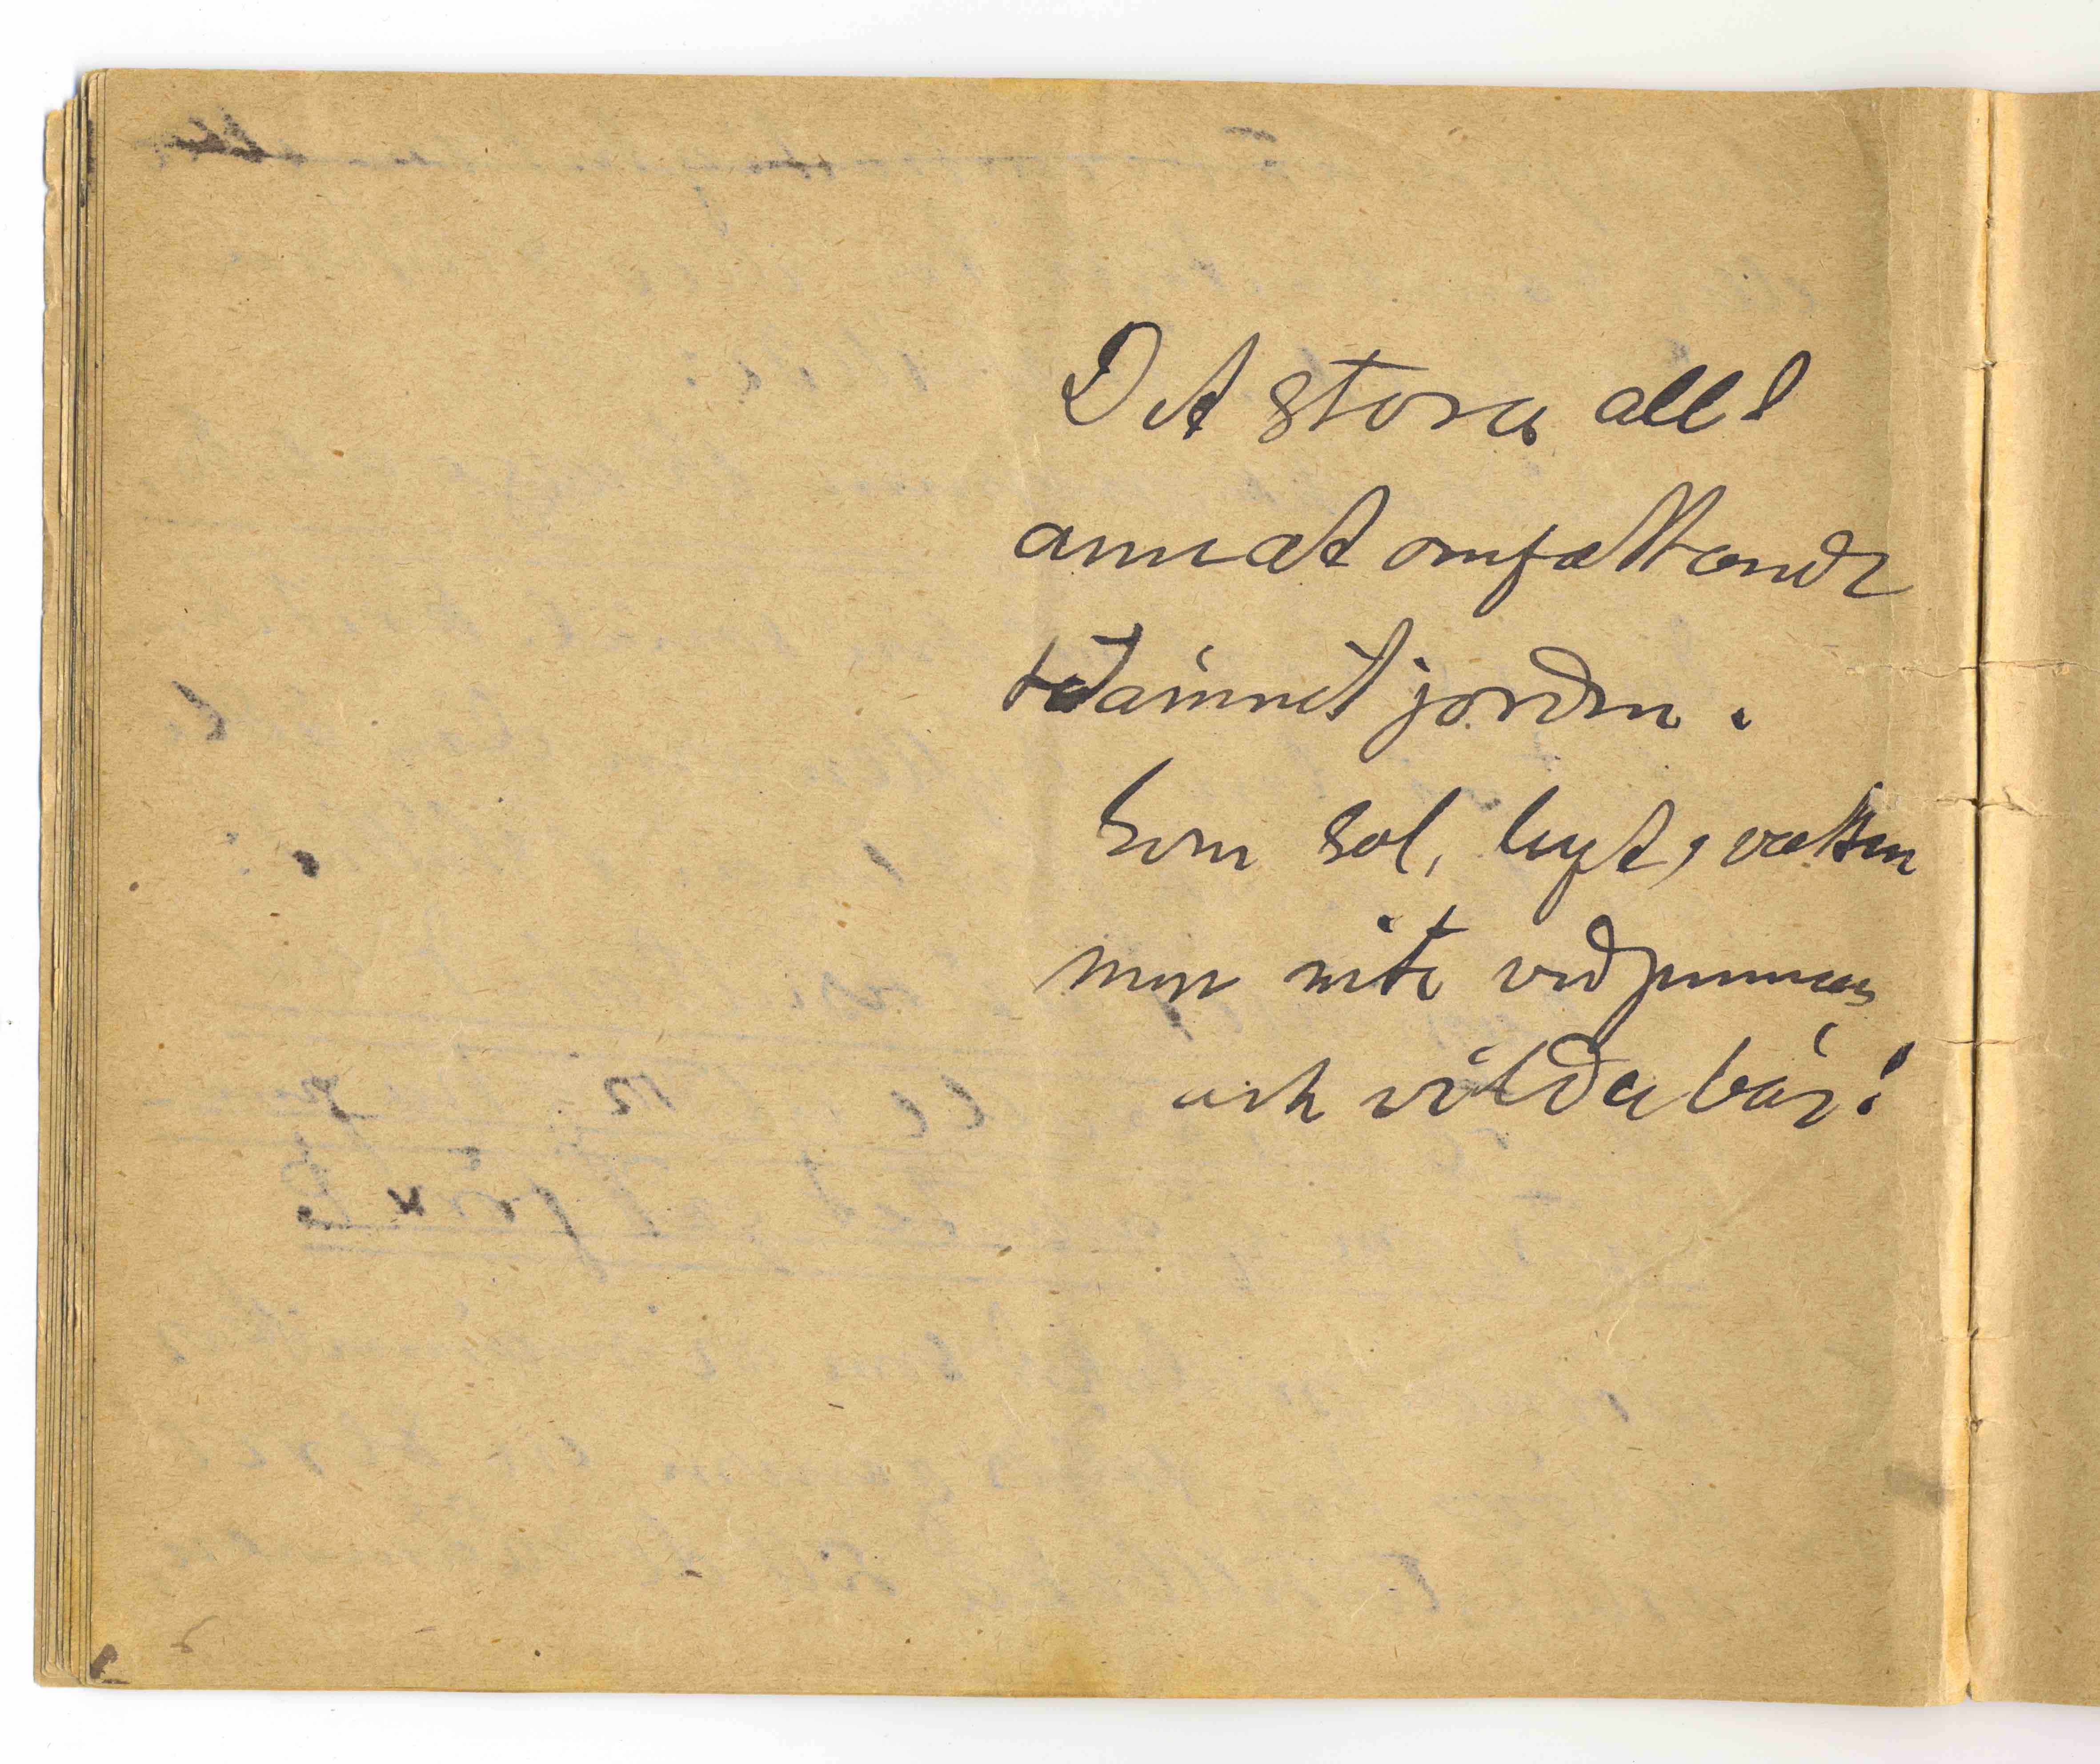 Det stora allt
annat omfattande
ämnet jorden.
Som sol, luft, vatten
men inte vedpinnar
och vilda bär!